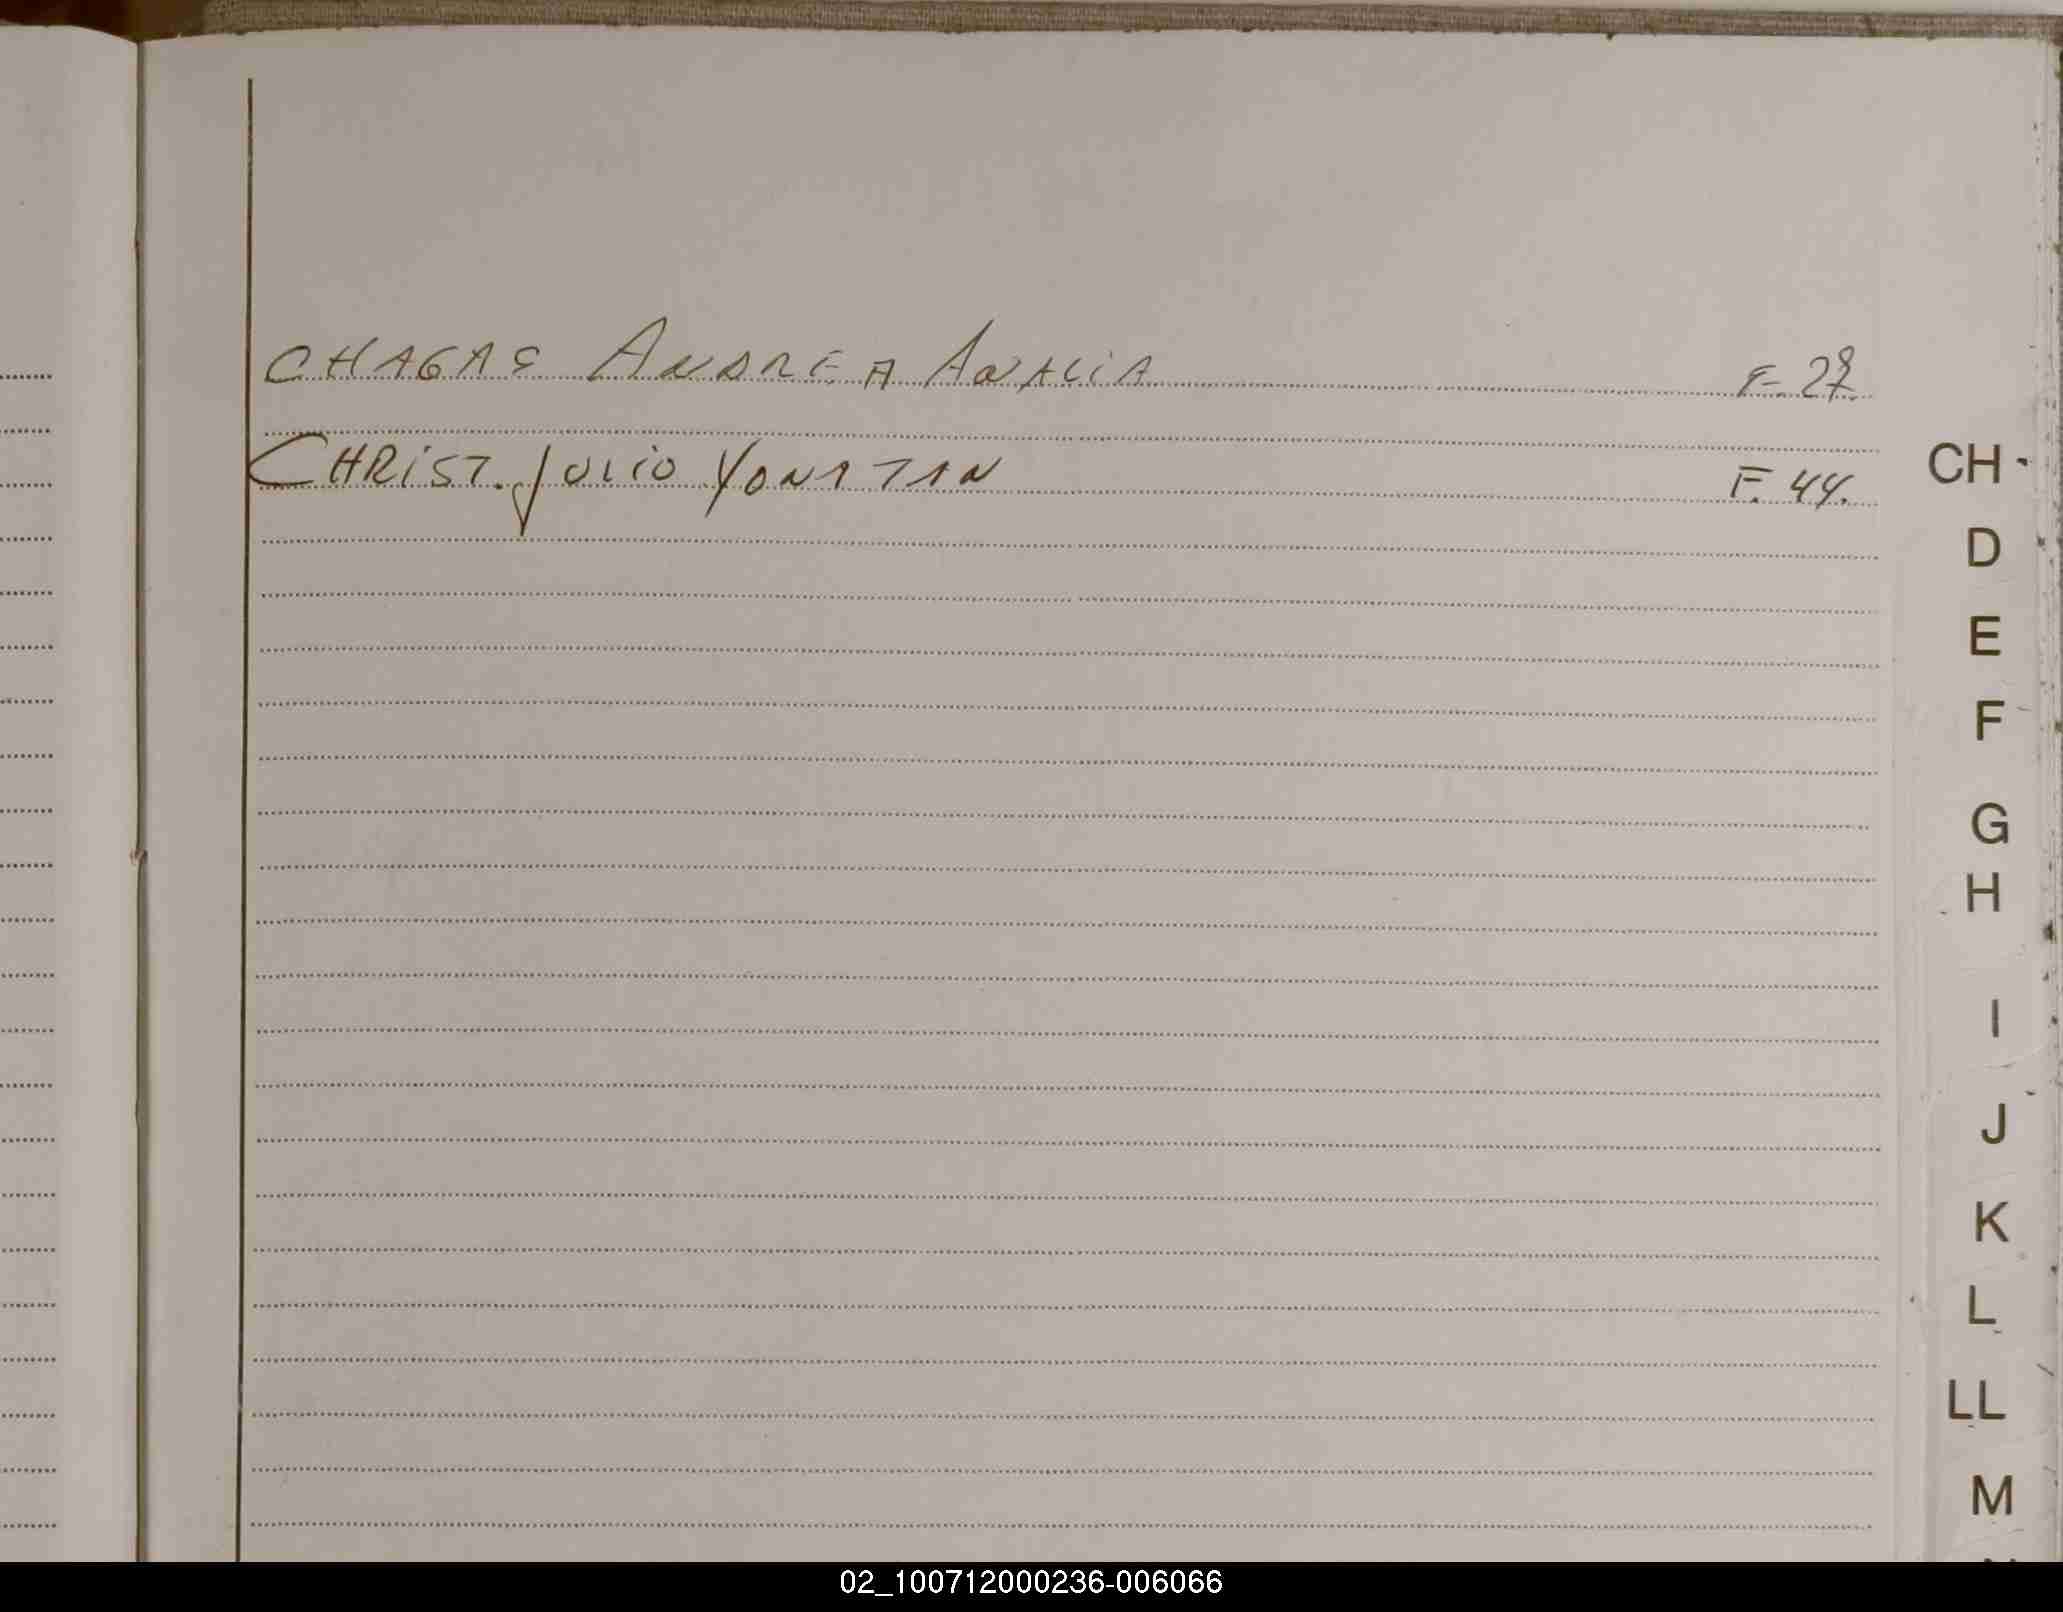 CHAGAS ANDREA ANALIA F. 27.
CHRIST. JULIO YONATAN F. 44.
CH
D
E
F
G
H
I
J
K
L
LL
M
02_100712000236-006066